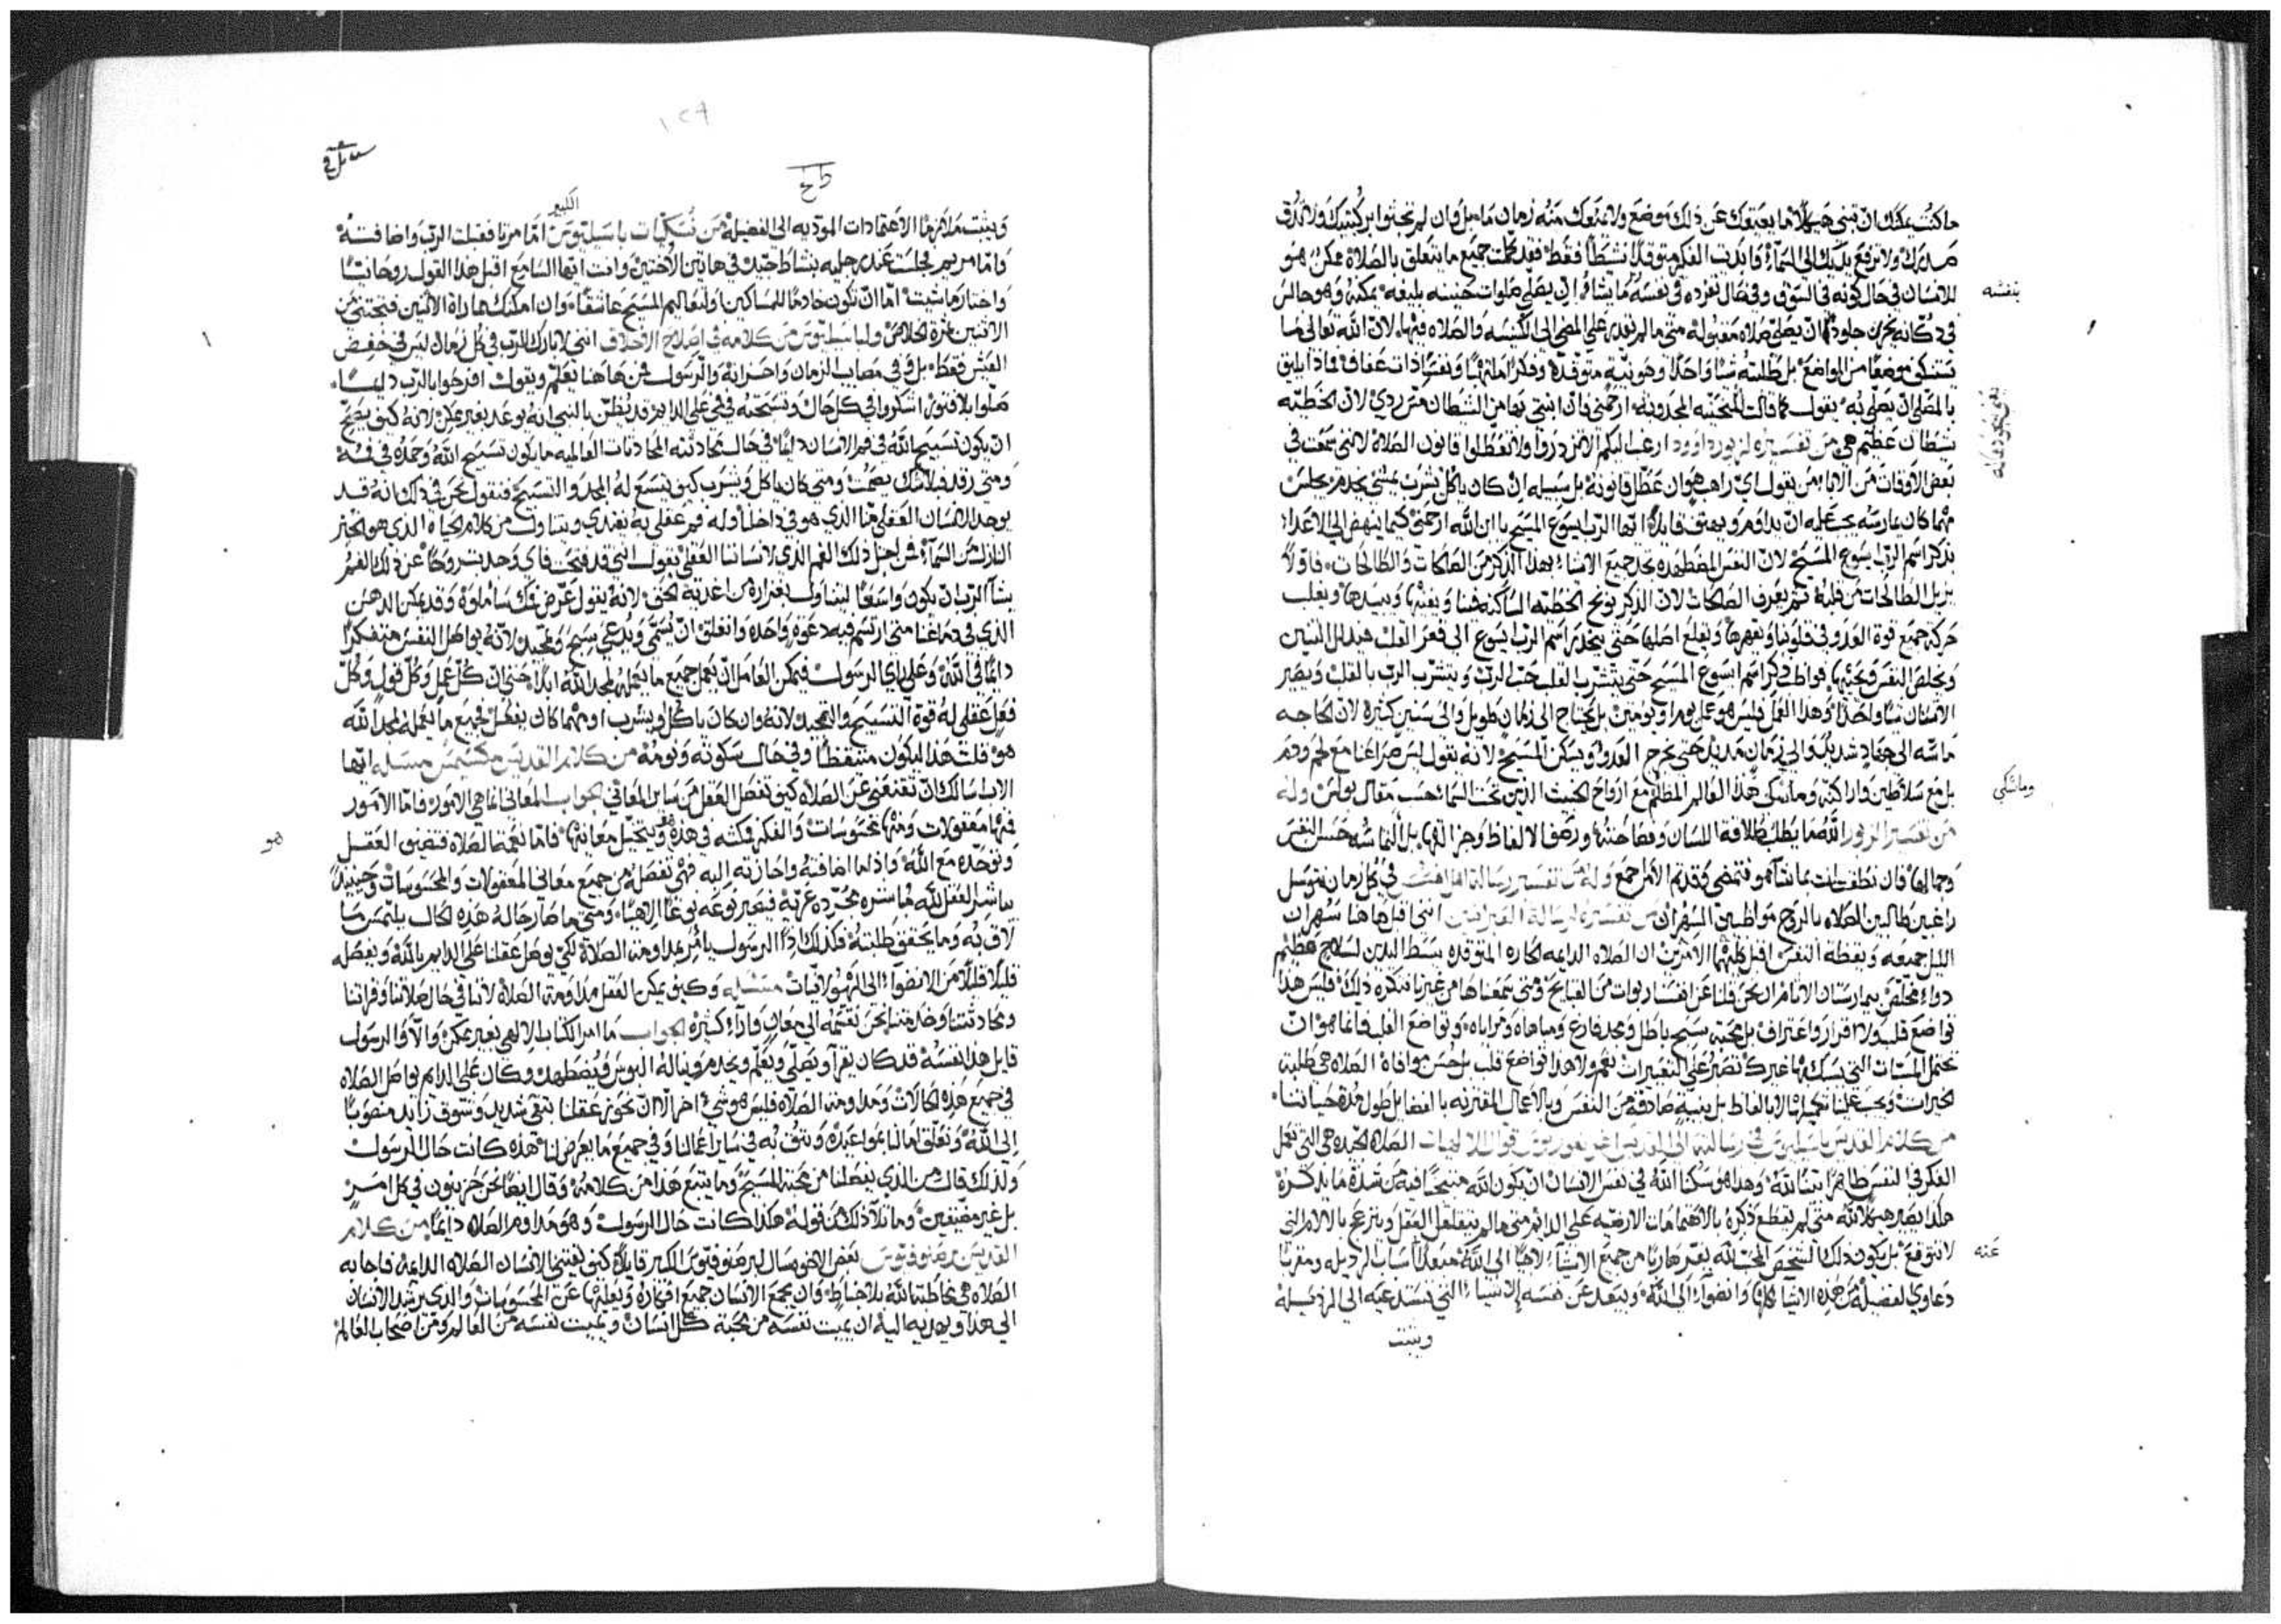 ما كنت يمكنك ان تبني هيكلا ما يعيقك عن ذلك موضع ولا يمنعك منه زمان ما بل وان لم تجثوا بركبتيك ولا تدق
صدرك ولا ترفع يديك الى السماء وابديت الفكر متوقدا نشطا فقط فقد كملت جميع ما يتعلق بالصلاة ممكن هو
للانسان في حال كونه في السوق وفي حال تفرده في نفسه ما يشاء ان يصلي صلوات حسنه بليغه يمكنه وهو جالس
في دكانه يخرز جلودا ان يصلي صلاه مقبولة متى ما لم يقدر على المضي الى الكنيسه والصلاه فيها لان الله تعالى ما
يستنكف موضعا من المواضع بل طلبته شيا واحدا وهو نية متوقدة وفكرا ملتهبا ونفسا ذات عفاف فماذا يليق
بالمصلي ان يصلي به يقول كما قالت المتحننه المحدودبه ارحمني فان ابنتي بها من الشيطان مس ردي لان الخطيه
شيطان عظيم هي من تفسيره لزبور داوود ارغب اليكم الا تزدروا ولا تعطلوا قانون الصلاة لانني سمعت في
بعض الاوقات من الاباء من يقول اي راهب هو ان عطل قانونه بل سبيله ان كان ياكل يشرب يمشي يخدم يجلس
مهما كان يمارسه يجب عليه ان يداوم ويهتف قايلا ايها الرب يسوع المسيح يا ابن الله ارحمني كيما ينهض الى الاعدا
بذكر اسم الرب يسوع المسيح لان النفس المضطهده تجد جميع الاشياء بهذا الذكر من الصالحات والطالحات فاولا
يزيل الطالحات من قلبه ثم يعرف الصالحات لان الذكر يوبخ الخطيه الساكنه فينا ويفنيها ويبيدها ويغلب
حركه جميع قوة العدو في قلوبنا ويقهرها ويقلع اصلها حتى ينحدر اسم الرب يسوع الى قعر القلب فيذلل التنين
ويخلص النفس ويحييها فواظب ذكر اسم ايسوع المسيح حتى يتشرب القلب حب الرب ويتشرب الرب بالقلب ويصير
الاثنان شيا واحدا وهذا الفعل فليس هو عمل يوم او يومين بل يحتاج الى زمان طويل والى سنين كثيره لان الحاجه
ماسه الى جهاد شديد والى زمان مديد حتى نخرج العدو ويسكن المسيح لانه يقول ليس صراعنا مع لحم ودم
بل مع سلاطين واراكنه وماسكي هذا العالم المظلم مع ارواح الخبث الذين تحت السما بحسب مقال بولس وله
من تفسير الزبور الله ما يطلب طلاقة اللسان وفصاحته ورصف الالفاظ وجزالتها بل التماسه حسن النفس
وجمالها فان نطقت انت بما شآ هو فتمضي وقد تم الامر اجمع وله من تفسير رسالة اهل افسس في كل زمان نتوسل
راغبين طالبين الصلاه بالروح مواظبين السهر ان من تفسيره لرسالة العبرانيين انني اقبل هاهنا سهران
الليل جميعه ويقظة النفس اقبل كليتهما الامرين ان الصلاه الدايمه الحاره المتوقده ببسط اليدين لسلاح عظيم
دواء مخلص بيمارستان الالام ان نحن قلنا عن انفسنا ربوات من القبايح ومتى سمعناها من غيرنا ننكره ذلك فليس هذا
تواضع قلب ولا اقرار واعتراف بل محبة سبح باطل ومجد فارغ ومباهاه ومراياه وتواضع القلب فانما هو ان
تحتمل المسبات التي يسبك بها غيرك تصبر على التعييرات نعم ولا هذا تواضع قلب بل حسن موافاة الصلاه هي طلبة
الخيرات ويجب علينا تكميلها لا بالفاظ بل بنية صادقة من النفس وبالاعمال المقترنه بالفضايل طول مدة حياتنا
من كلام القديس باسيليوس في رسالته الى القديس اغريغوريوس قوال الالهيات الصلاه الجيده هي التي تجعل
الفكر في النفس ظاهرا بينا لله وهذا هو سكنا الله في نفس الانسان ان يكون الله متنيحا فيه من شدة ما يذكره
هكذا يصير هيكلا لله متى لم يقطع ذكره بالاهتمامات الارضيه على الدايم متى ما لم يتقلقل العقل وينزعج بالالام التي
لا تتوقع بل يكون ذلك الشخص المحب لله يفر هاربا من جميع الاشياء لاجيا الى الله مبعدا اسباب الرذيله ومقربا
دعاوي الفضيله من هذه الاشيا كلها وانضواء الى الله ويبعد عن نفسه الاشياء التي تستدعيه الى الرذيله
ويثبت
بنفسه
وماسكي
عنه
١٢٩
ويثبت ملازما الاعتمادات المودّيه الى الفضيلة من نسكيات باسيليوس الكبير امّا مرتا فقبلت الرب واضافته
وامّا مريم فجلست عند رجليه بنشاط جيد في هاتين الاختين وانت ايها السامع اقبل هذا القول روحانيا
واختار ما شيت امّا ان تكون خادما للمساكين او لتعاليم المسيح عاشقا وان امكنك مباراة الاثنين فتجتني من
الاثنين ثمرة الخلاص ولباسيليوس من كلامه في اصلاح الاخلاق انني لابارك الرب في كل زمان ليس في خفض
العيش فقط بل وفي مصايب الزمان واحزانه والرسول فمن هاهنا تعلم ويقول افرحوا بالرب دايما
صلوا بلا فتور اشكروا في كل حال وتسبحته في فمي على الدايم قد يظن بالنبي انه يوعد بغير ممكن لانه كيف يصح
ان يكون تسبيح الله في فم الانسان دايما في حال محادثته المحادثات العالميه ما يكون تسبيح الله وحمده في فمه
ومتى رقد فبلا شك يصمت ومتى كان ياكل ويشرب كيف يتسع له المجد والتسبيح فنقول نحن في ذلك انه قد
يوجد للانسان العقلي منا الذي هو في داخلنا وله فم عقلي به يغتدي ويتناول من كلام الحياه الذي هو الخبز
النازل من السماء فمن اجل ذلك الفم الذي لانساننا العقلي يقول النبي قد فتحت فاي وجذبت روحا عن ذلك الفم
يشآ الرب ان يكون واسعا ليتناول بغزارة من اغدية الحق لانه يقول عرّض فمك ساملوه وقد يمكن الدهن
الذي في دماغنا متى ارتسم فيه دعوة واحده وانغلق ان يسمى ويدعى سبح وتمجيد لانه يواصل النفس متفكرا
دايما في الله وعلى راي الرسول فيمكن العامل ان يعمل جميع ما يعمله لمجد الله ابدا حتى ان كل عمل وكل قول وكل
فعل عقلي له قوة التسبيح والتمجيد لانه وان كان ياكل او يشرب او مهما كان يفعل فجميع ما يعمله لمجد الله
هو قلت هذا ليكون متيقظا وفي حال سكوته ونومه من كلام القديس مكسيمس مسئله ايها
الاب اسالك ان تقنعني عن الصلاه كيف تفصل العقل من ساير المعاني الجواب المعاني انما هي الامور فاما الامور
فمنها معقولات ومنها محسوسات والفكر فمكثه في هذه هو ويتخيل معانيها فاما نعمة الصلاه فتضيف العقل
وتوحده مع الله واذا ما اضافته واجازته اليه فهي تفصله من جميع معاني المعقولات والمحسوسات وحينيذ
يباشر العقل لله مباشره مجرده عريّة فيصير نوعه نوعا الاهيا ومتى ما صار حاله هذه الحال يلتمس ما
لاق به وما يخفق طلبته فكذلك اذا الرسول يامر بمداومة الصلاة لكي نوصل عقلنا على الدايم بالله ونفصله
قليلا قليلا من الانضواء الى الهيولانيات مسئله وكيف يمكن العقل مداومة الصلاة لاننا في حال صلاتنا وقراتنا
ومحادثتنا وخدمتنا نحن نقسمه الى معان واراء كثيره الجواب ما امر الكتاب الالهي بغير ممكن والا والرسول
قايل هذا نفسه قد كان يقرا ويصلي ويعلم ويخدم ويناله البوس ويضطهد وكان على الدايم يواصل الصلاه
في جميع هذه الحالات ومداومة الصلاه فليس هو شيء اخر الا ان نحوز عقلنا بتقى شديد وشوق زايد منصوبا
الى الله ونعلق امالنا بمواعيده ونثق به في ساير اعمالنا وفي جميع ما يعرض لنا هذه كانت حال الرسول
ولذلك قال من الذي يفصلنا من محبة المسيح وما يتبع هذا من كلامه وقال ايضا نحن حزينون في كل امر
بل غير مضيقين وما تلا ذلك من قوله هكذا كانت حال الرسول وهو مداوم الصلاه دايما من كلام
القديس برصنوفيوس بعض الاخوه سال لبرصنوفيوس الكبير قايلا كيف يقتني الانسان الصلاه الدايمة فاجابه
الصلاه هي مخاطبة الله بلا اختباط وان يجمع الانسان جميع افكاره ويغلبها عن المحسوسات والذي يرشد الانسان
الى هذا ويهديه اليه ان يميت نفسه من محبة كل انسان ويميت نفسه من العالم ومن اصحاب العالم
هو